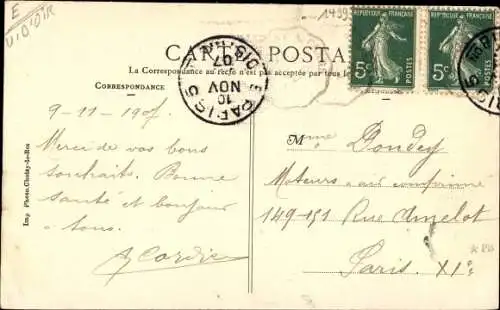 E
U.O'OIR
1499
CARTE POSTA
La Correspondance au recto n'est pas acceptée par tous
REPUBLIQUE FRANÇAISE
5c
POSTES
REPUBLIQUE FRANÇAISE
5c
POSTES
PARIS
10
NOV
07
DISTRIB
CORRESPONDANCE
9-11-1907
Merci de vos bons
souhaits. Bonne
santé et bonjour
à tous.
Imp. Photo. Choisy-le-Roi
M me Dondey
Moteurs air comprimé
149-151 Rue Amelot
Paris. XIe